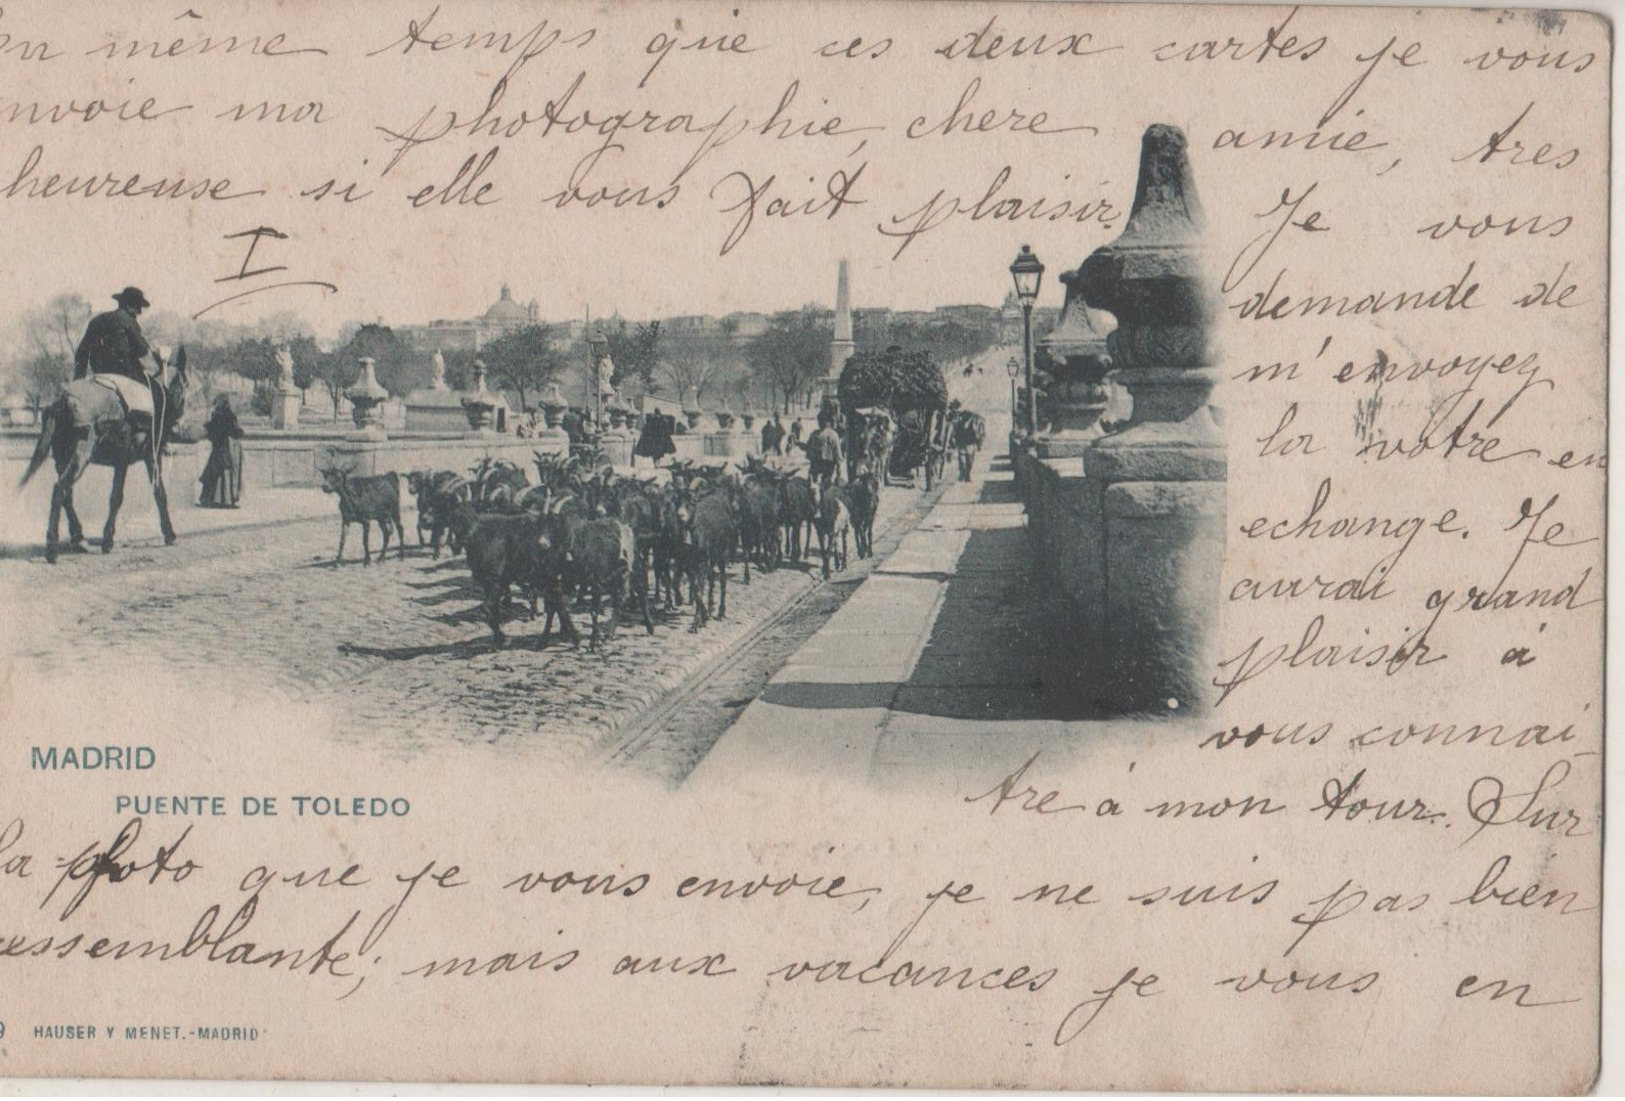 En même temps que ces deux cartes je vous
envoie ma photographie, chere amie, tres
heureuse si elle vous fait plaisir. Je vous
I
demande de
m'envoyez
la votre en
echange. Je
aurai grand
plaisir à
vous connai-
tre à mon tour. Sur
MADRID
PUENTE DE TOLEDO
la photo que je vous envoie, je ne suis pas bien
ressemblante; mais aux vacances je vous en
9 HAUSER Y MENET.-MADRID